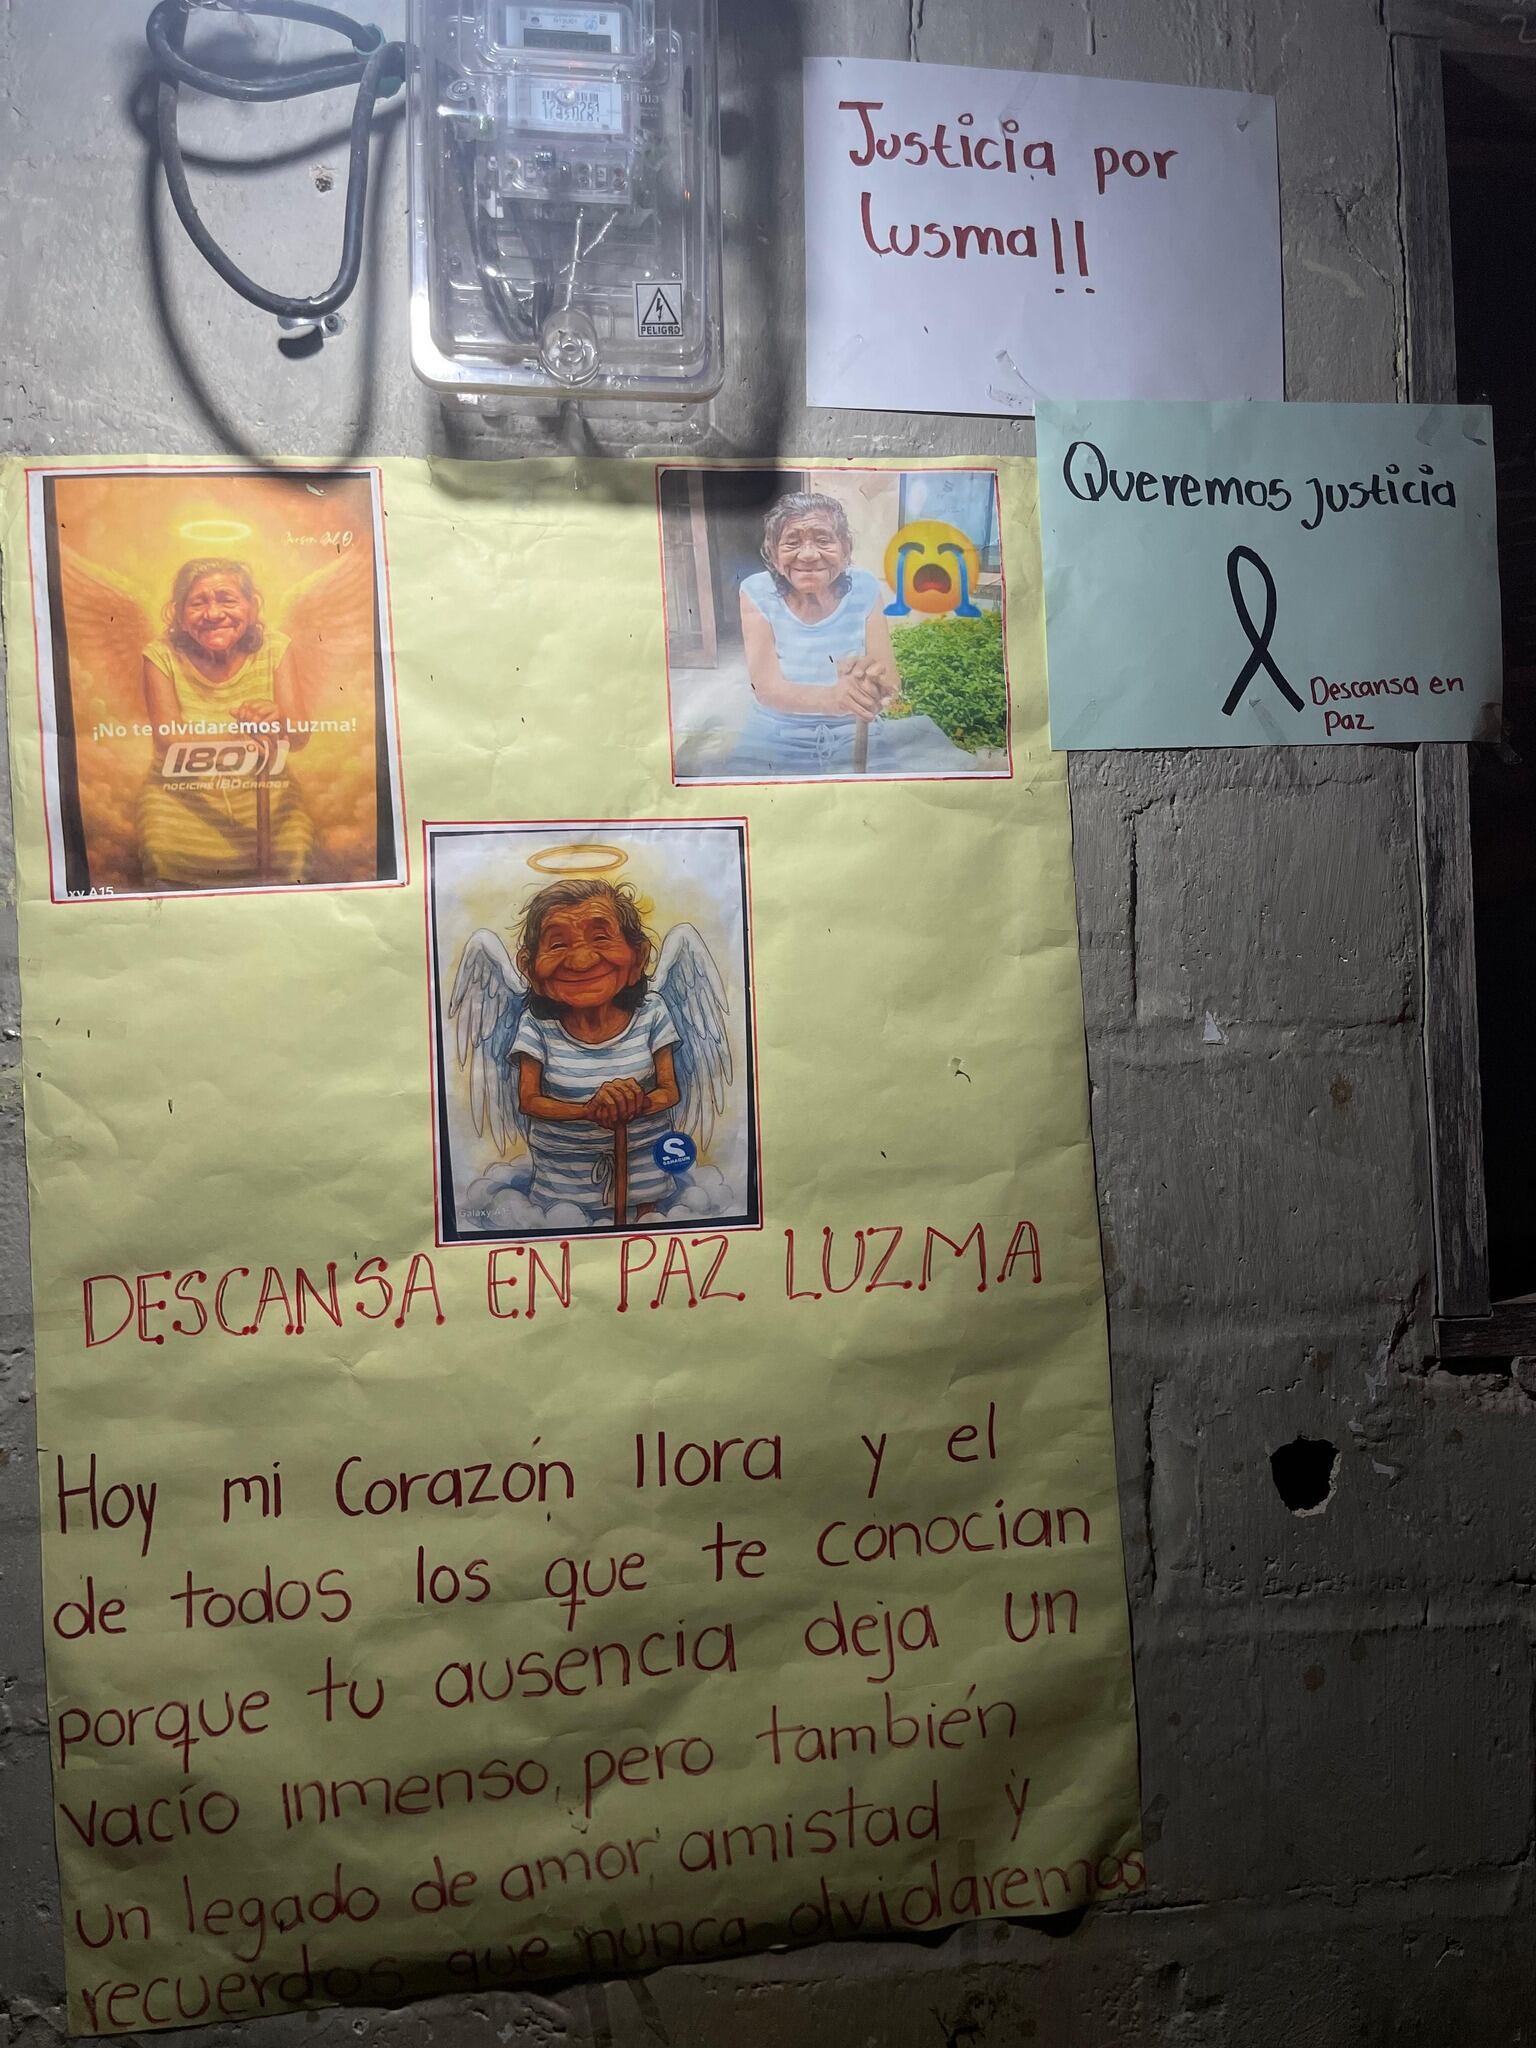 PELIGRO
Justicia por
Lusma!!
Queremos justicia
Descansa en
Paz
¡No te olvidaremos Luzma!
180°
NOTICIAS 180 GRADOS
xy A15
S
SAHAGUN
Galaxy A15
DESCANSA EN PAZ LUZMA
Hoy mi Corazón llora y el
de todos los que te conocían
porque tu ausencia deja un
vacío inmenso, pero también
un legado de amor, amistad y
recuerdos que nunca olvidaremos